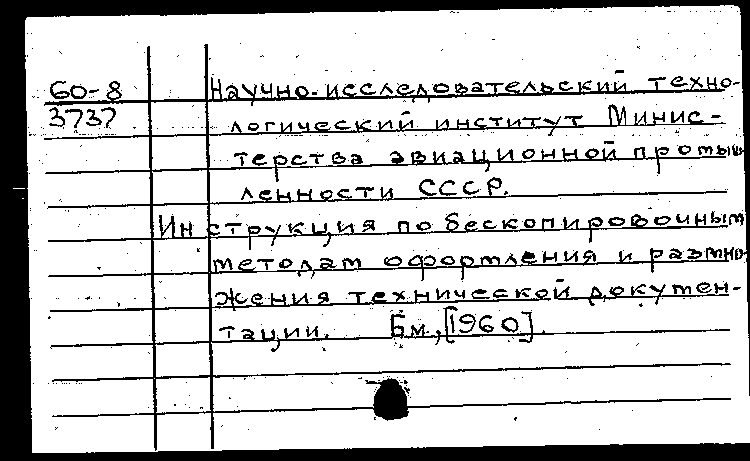 60-8 Научно-исследовательский техно-
3737 логический институт Минис-
терства авиационной промыш
ленности СССР.
Инструкция по бескопировочным
методам оформления и размно-
жения технической докумен-
тации. Бм, [1960].